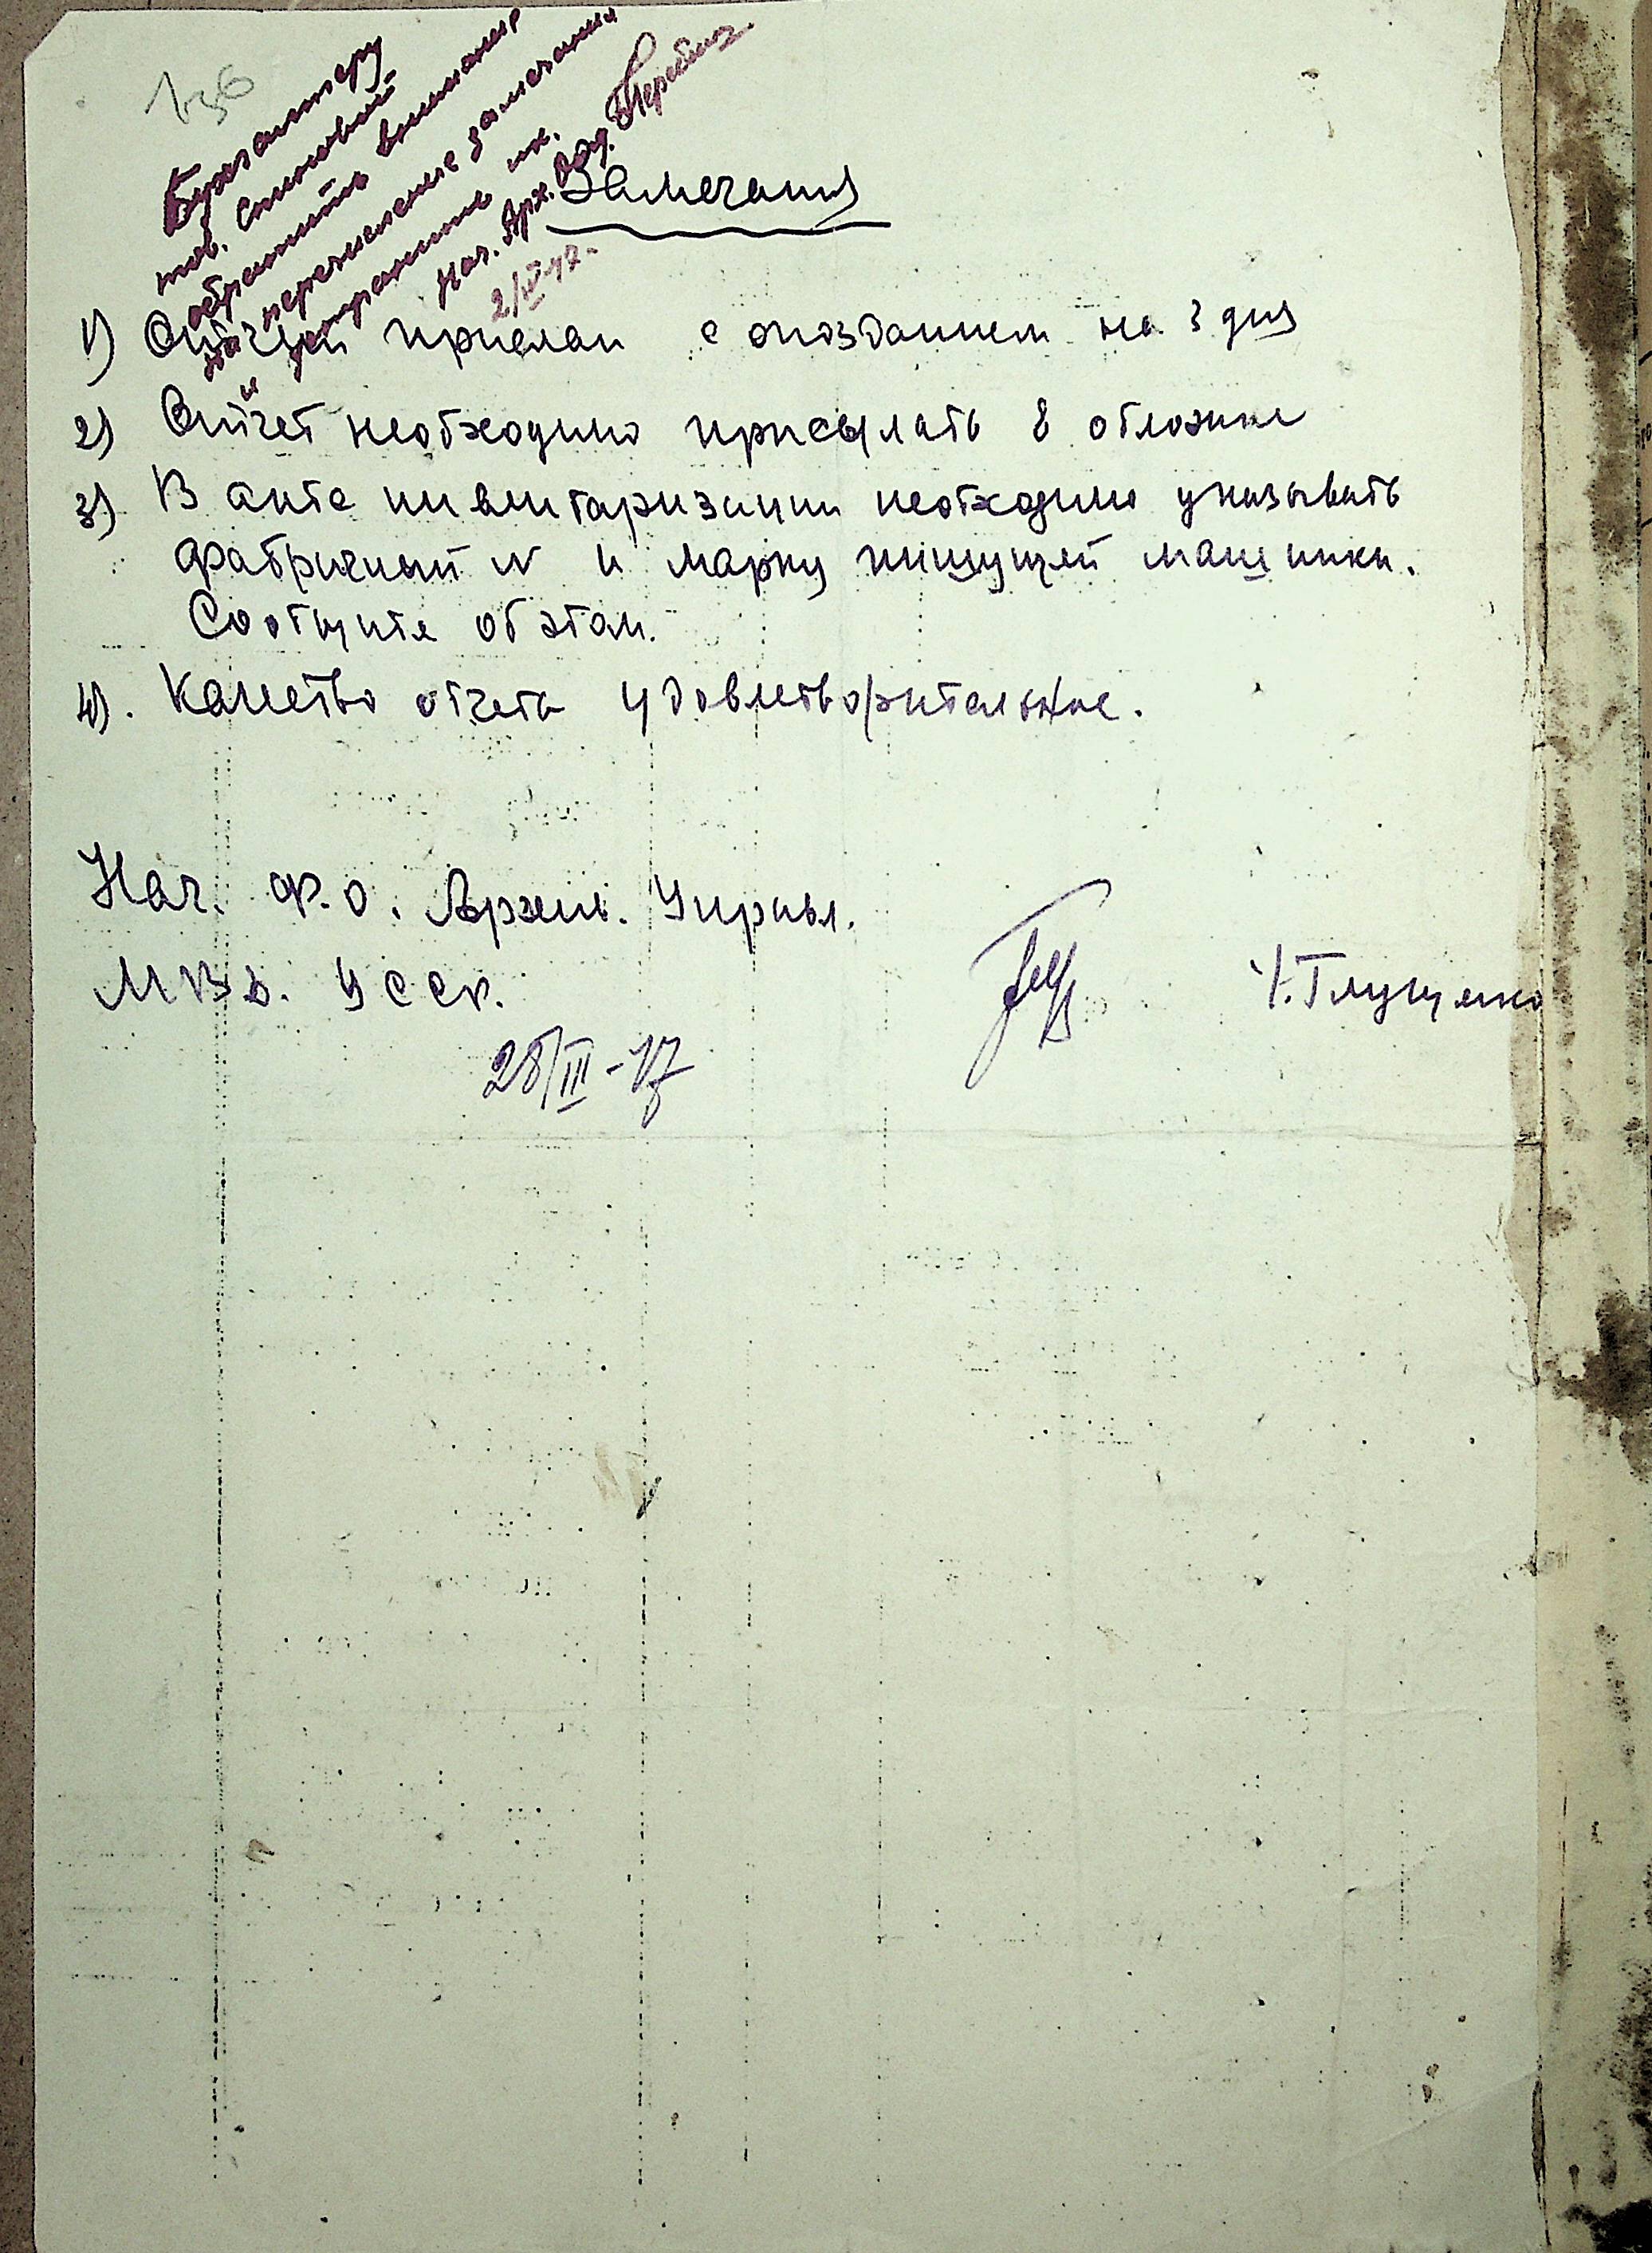 136
Бухгалтеру
тов.
обратить внимание
на перечисленные замечания
и устранить их.
Нач. Арх. Отд.
2/IV-47.
Замечания
1) Отчет прислан с опозданием на 3 дня
2) Отчет необходимо присылать в обложке
3) В акте инвентаризации необходимо указывать
фабричный N и марку пишущей машинки.
Сообщите об этом.
4). Качество отчета удовлетворительное.
Нач. Ф.О. Архивн. Управл.
МВД. УССР.
Глущенко
28/III-47